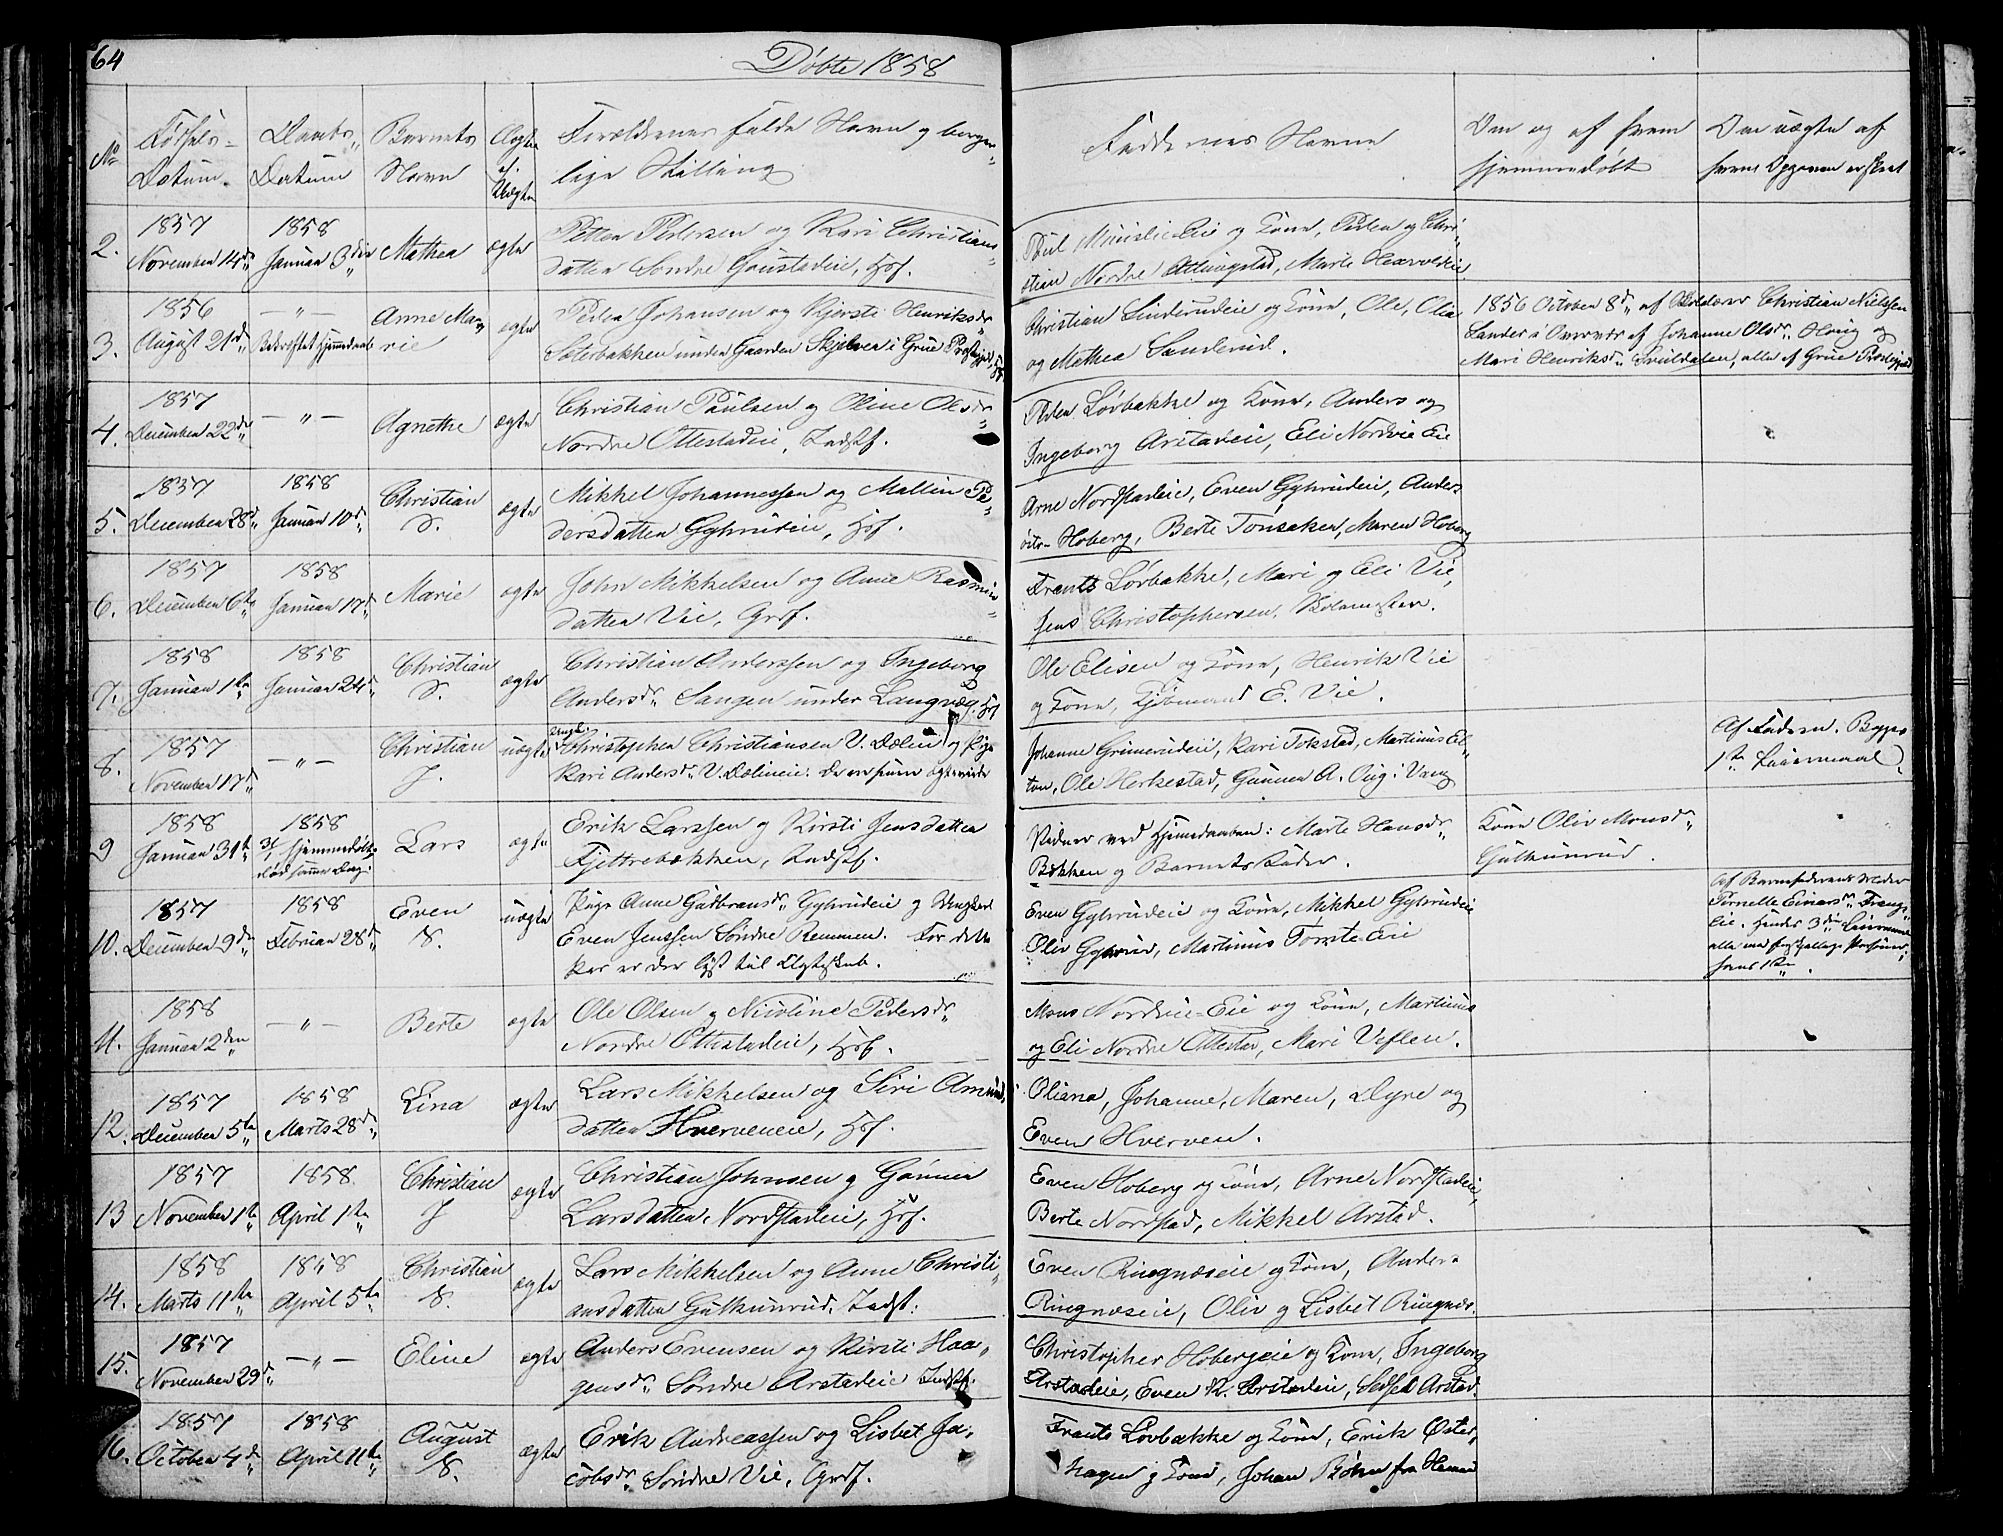 64
Døbte 1858
No
Fødsels-
Datum.
Daabs-
Datum
Barnets
Navn
Ægte
el.
Uægte
Forældrenes fulde Navn og borger-
lige Stilling
Faddernes Navne
Om og af hvem
hjemmedøbt
Om uægte af
hvem Opgaven er skeet
2.
1857
November 14d
1858
Januar 3die
Mathea
ægte
Petter Pedersen og Kari Christians
datter Søndre Gaustadeie, Hsf.
Poul Eie og Kone, Peder og Chri-
stian Nordre Ottingstad, Marte
3.
1856
August 21d
— " —
Bekræftet Hjemmedaab
Anne Ma-
rie
ægte
Peder Johansen og Kjersti Henriksdr
Sæterbakken under Gaarden Skjelver i Grue Præstegjeld
Christian Sinderudeie og Kone, Ole, Olia
og Mathea Sanderud.
1856 October 8d af Skolelærer Christian Nielssen
Sander i Overvær af Johanne Olsdr Honig og
Mari Henriksdr Svuldalen, alle af Grue Præstegjeld
4.
1857
December 22d
— " —
Agnethe
ægte
Christian Paulsen og Oline Olsdr
Nordre Ottestadeie, Indstf.
Peder Løvbakke og Kone, Anders og
Ingeborg Arstadeie, Eli Nordvie Eie
5.
1857
December 28d
1858
Januar 10d
Christian
D.
ægte
Mikkel Johannessen og Mallin Pe-
dersdatter Gyhrudeie, Hsf.
Arne Nordstadeie, Even Gyhrudeie, Anders
Hoberg, Berte Tønsaker, Maren Hoberg
6.
1857
December 6te
1858
Januar 17d
Marie
ægte
John Mikkelsen og Anne Rasmus
datter Vie, Grdf.
Frants Løvbakke, Mari og Eli Vie,
Jens Christophersen,
7.
1858
Januar 1te
1858
Januar 24d
Christian
D.
ægte
Christian Anderssen og Ingeborg
Andersdr Sangen under Langvæg. Hsf
Ole Elisen og Kone, Henrik Vie
og Kone, Kjøbmand E. Vie.
8.
1857
November 17d
— " —
Christian
J.
uægte
Ungk.
Christopher Christiansen V. Dælin og Pige
Kari Andersdr V. Dælineie.
Johanne Grimerudeie, Kari Tokstad, Martinus
Ole Herkestad, Gunner A. i Vang
Af Faderen. Begges
1te Leiermaal.
9
1858
Januar 31te
1858
31/1 Hjemmedøbt
død samme Dag.
Lars
ægte
Erik Larssen og Kirsti Jensdatter
Fjettrebakken, Indstf.
Vidner ved Hjemmedaaben: Marte Hansdr
Bakken og Barnets Fader.
Kone Oliv Monsdr
Gulkunrud.
10.
1857
December 9de
1858
Februar 28d
Even
N.
uægte
Pige Anne Gudbransdr Gyhrudeie og Ungkarl
Even Jenssen Søndre Remmen. For dette
Par er der lyst til Ægteskab.
Even Gyhrudeie og Kone, Mikkel Gyhrudeie
Oliv Gyhrud, Martinus Tomte-Eie
af Barnefaderens Moder
Pernelle Einarsdr
Eie. Hendes 3die Leiermaal
alle med forskjellige Personer;
hans 1te.
11.
1858
Januar 2den
— " —
Berte
ægte
Ole Olsen og Nicoline Pedersdr
Nordre Ottestadeie, Hsf.
Mons Nordvie-Eie og Kone, Martinus
og Eli Nordre Ottestad, Mari Veflen.
12.
1857
December 5te
1858
Marts 28d
Lina
ægte
Lars Mikkelsen og Siri Amund,
datter Hverveneie, Hsf.
Oliana, Johanne, Maren, Dyre og
Even Hverven.
13
1857
November 1te
1858
April 1te
Christian
J
ægte
Christian Johnsen og Gunner
Larsdatter, Nordstadeie, Hsf.
Even Hoberg og Kone, Arne Nordstadeie,
Berte Nordstad, Mikkel Arstad.
14.
1858
Marts 11te
1858
April 5te
Christian
N.
ægte
Lars Mikkelsen og Anne Christi-
ansdatter Gulkunrud, Indst:
Even Ringnæseie og Kone, Anders
Ringnæseie, Oliv og Lisbet Ringnæs.
15.
1857
November 29d
— " —
Eline
ægte
Anders Evensen og Kirsti Haa-
gensdr Søndre Arstadeie Indstf.
Christopher Hobergeie og Kone, Ingeborg
Arstadeie, Even K. Arstadeie, Sidsel Arstad
16.
1857
October 4de
1858
April 11te
August
N.
ægte
Erik Andreassen og Lisbet Ja-
cobsdr Søndre Vie, Grdf.
Frants Løvbakke og Kone, Erik Øster-
hagen og Kone, Johan Bøhn fra Hamar